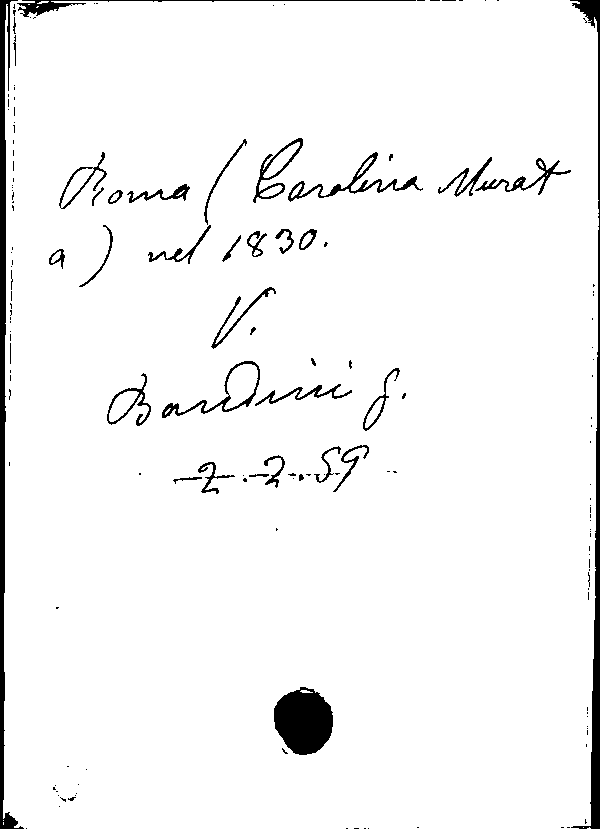 Roma (Carolina Murat
a) nel 1830.
V.
Bandini G.
2.2.59